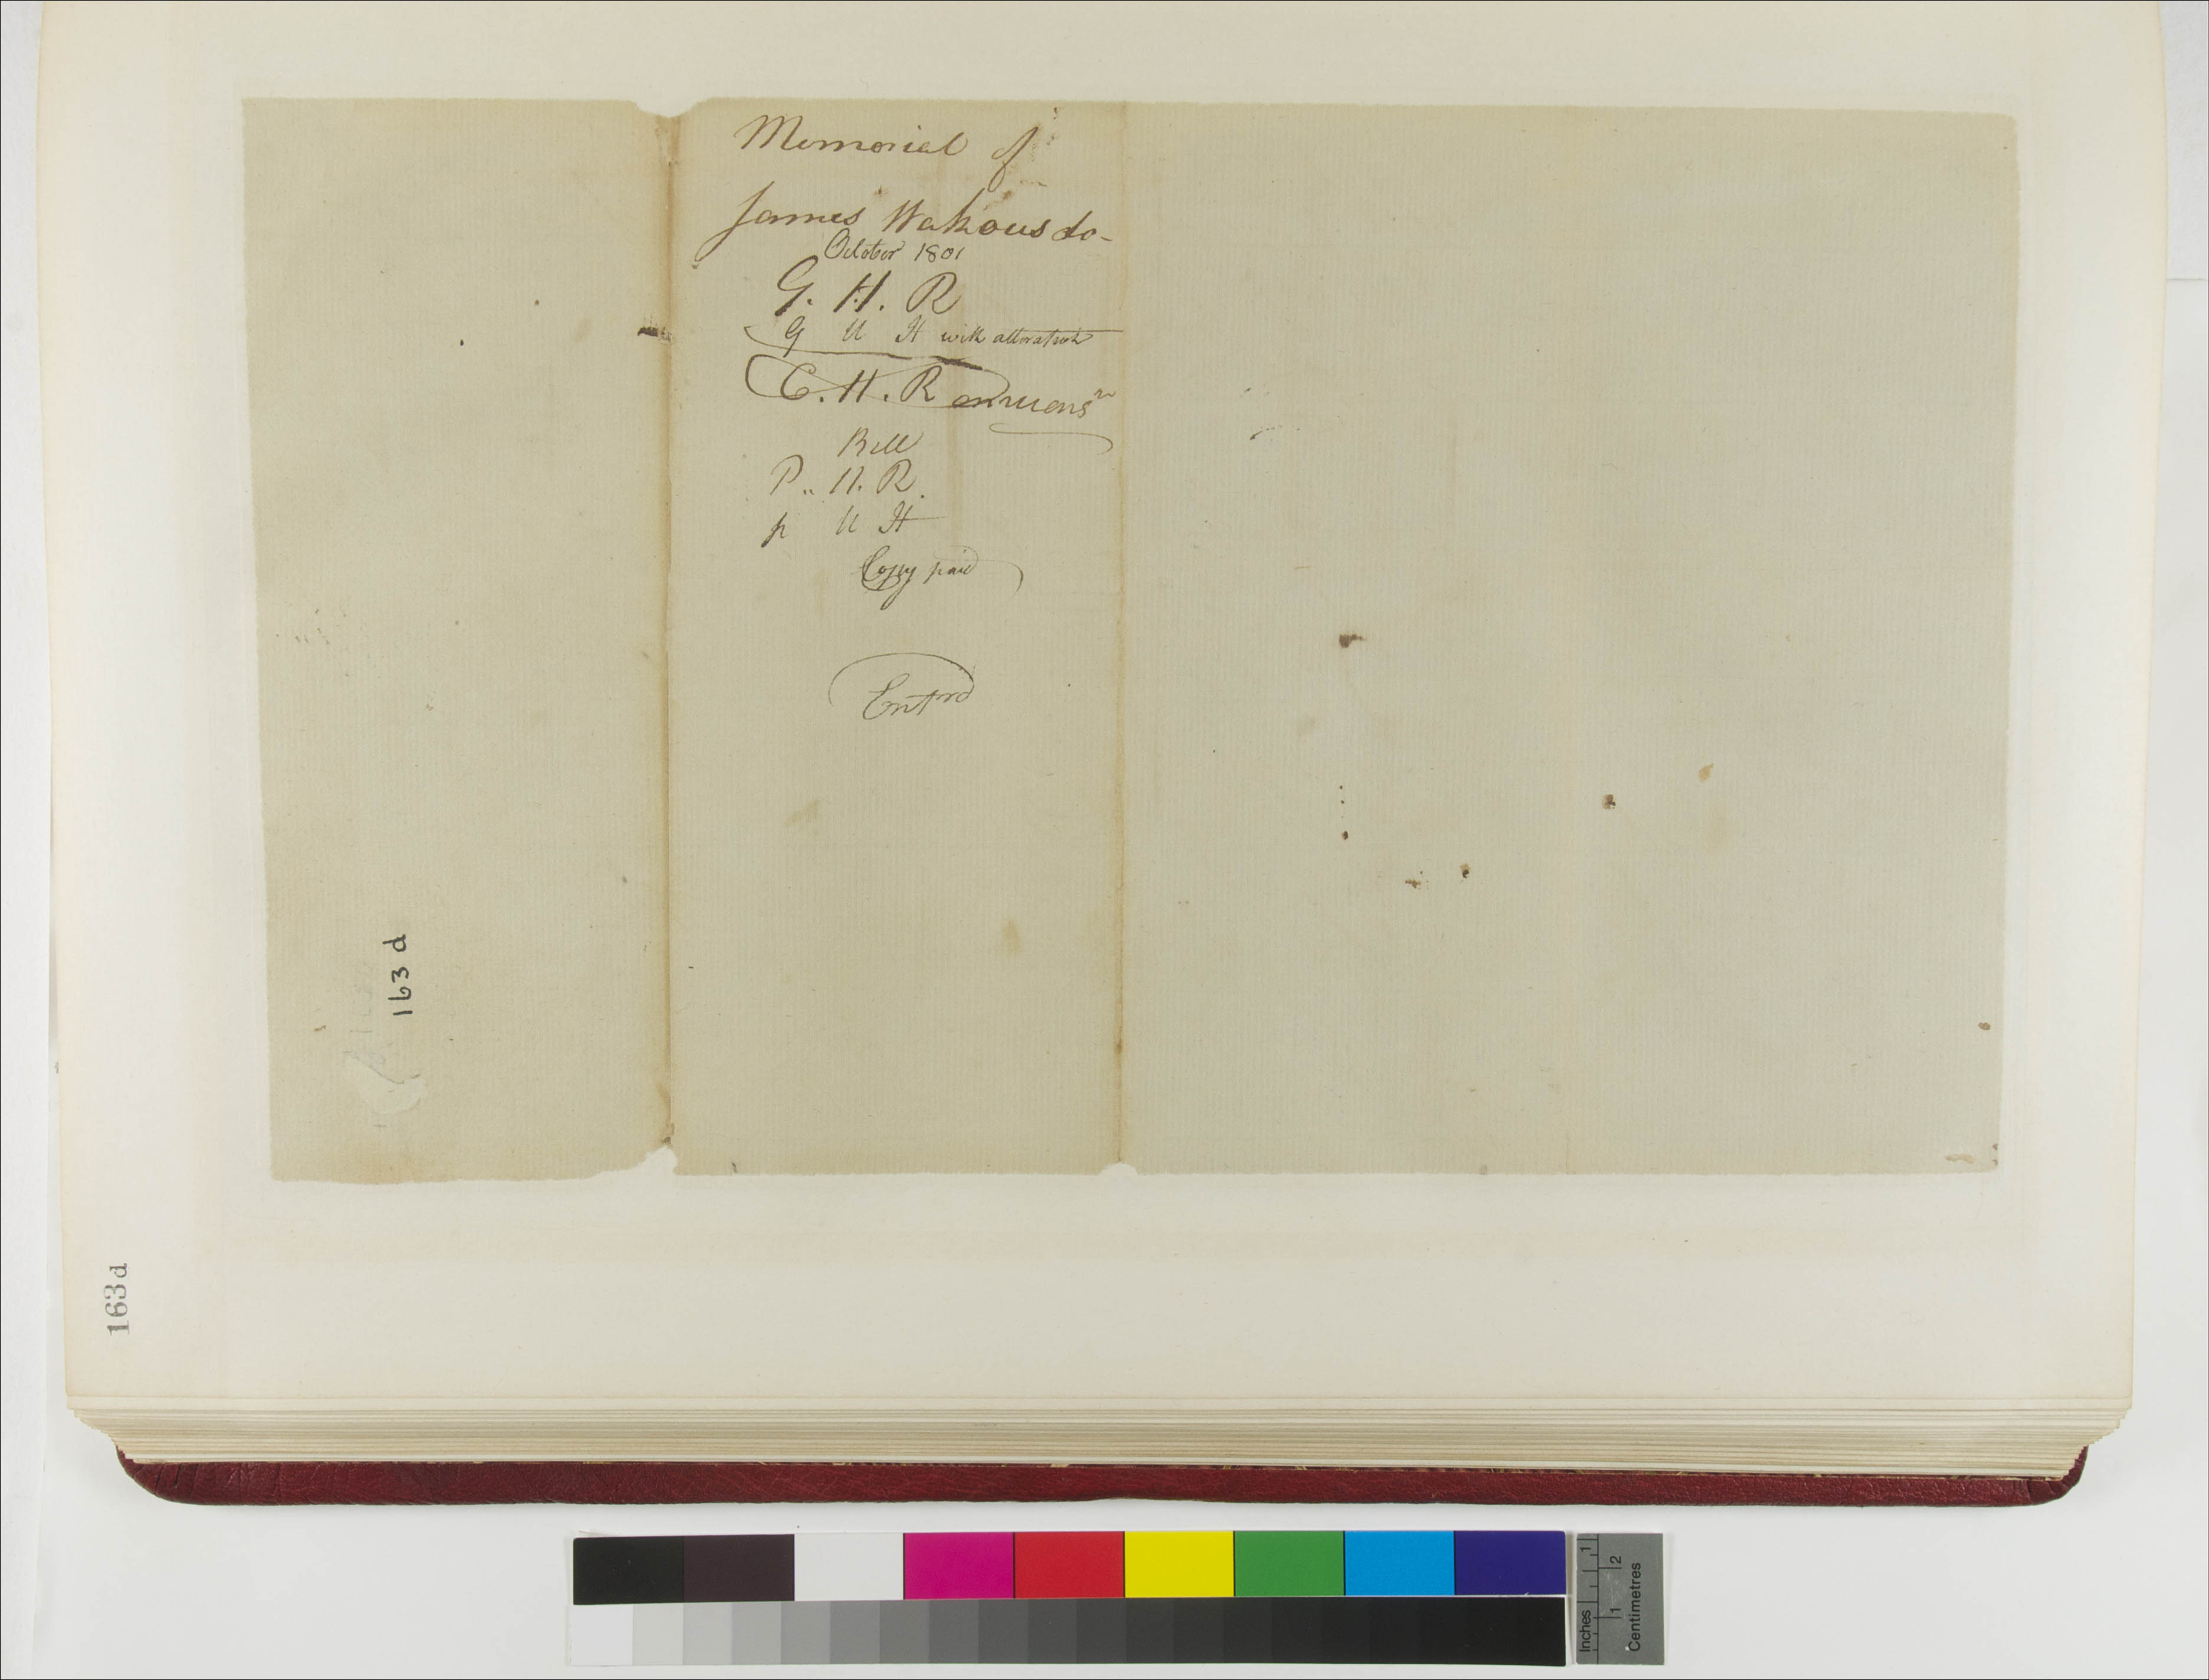 Memorial of
James Wahous &c-
October 1801
G. H. R
G U H with alteration
C. H. R
Bill
P.. H. R.
p U H
Copy paid
Entrd
163 d
163 d
Inches 1
Centimetres 1 2